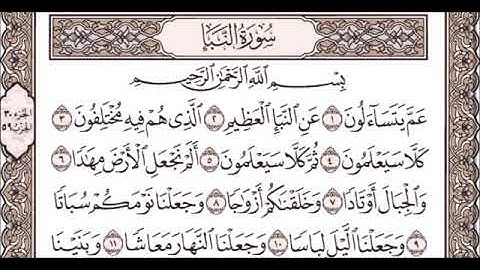 سُورَةُ النَّبَإِ
بِسْمِ اللَّهِ الرَّحْمَٰنِ الرَّحِيمِ
عَمَّ يَتَسَاءَلُونَ ١ عَنِ النَّبَإِ الْعَظِيمِ ٢ الَّذِي هُمْ فِيهِ مُخْتَلِفُونَ ٣
كَلَّا سَيَعْلَمُونَ ٤ ثُمَّ كَلَّا سَيَعْلَمُونَ ٥ أَلَمْ نَجْعَلِ الْأَرْضَ مِهَٰدًا ٦
وَالْجِبَالَ أَوْتَادًا ٧ وَخَلَقْنَٰكُمْ أَزْوَٰجًا ٨ وَجَعَلْنَا نَوْمَكُمْ سُبَاتًا
٩ وَجَعَلْنَا الَّيْلَ لِبَاسًا ١٠ وَجَعَلْنَا النَّهَارَ مَعَاشًا ١١ وَبَنَيْنَا
الجزء ٣٠
الحزب ٥٩